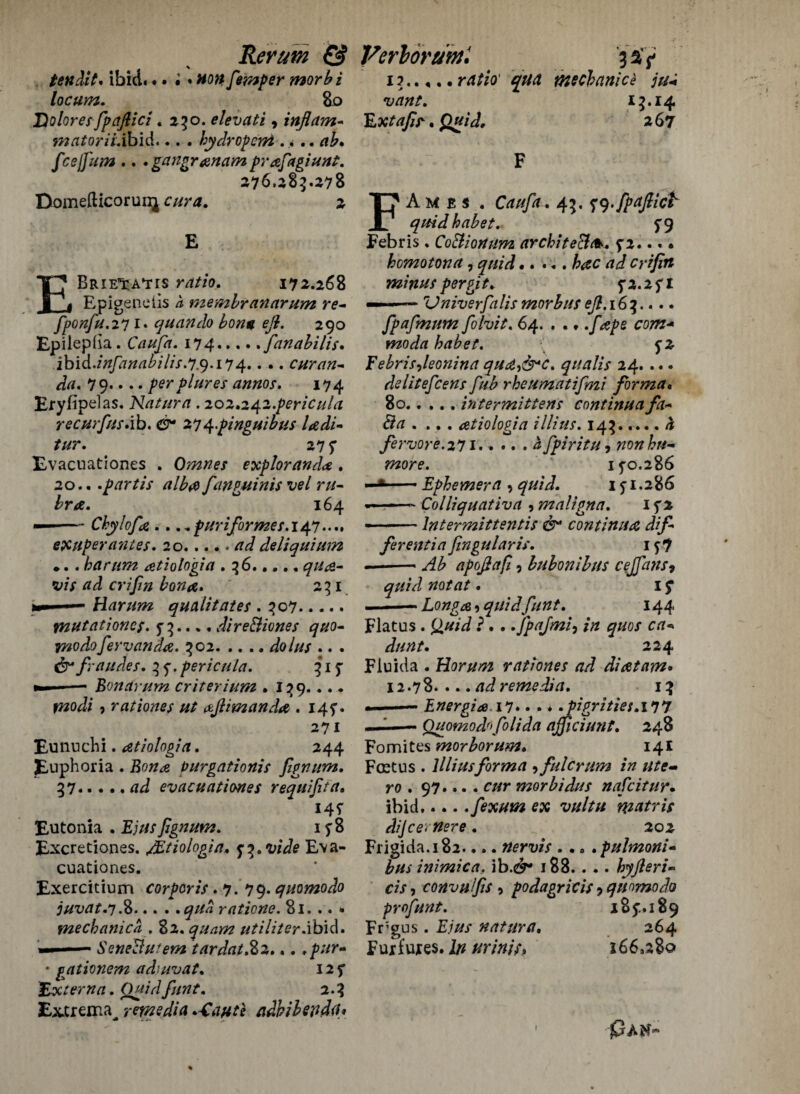 Rerum & Verborum. 325
tendit. ibid... . . non semper morbi
locum. 80
Dolores spastici . 230. elevati , inflam-
matorii.ibid.... hydropem .... ab-
scessum ... gangrænam præsagiunt.
276.283.278
Domesticorum cura. 2
E
EBrietatis ratio. 172.268
Epigenesis à membranarum re-
sponsu.271. quando bona est. 290
Epilepsia. Causa. 174.....sanabilis.
ibid.insanabilis.79.174.... curan-
da. 79.... per plures annos. 174
Erysipelas. Natura . 202.242.pericula
recursus.ib. & 274.pinguibus lædi-
tur. 275
Evacuationes . Omnes explorandæ .
20.. .partis albæ sanguinis vel ru-
bræ. 164
—— Chylosæ .... puriformes.147....
exuperantes. 20..... ad deliquium
... harum ætiologia . 36..... quæ-
vis ad crisin bonæ. 231
—— Harum qualitates . 307.....
mutationes. 53.... directiones quo-
modo servandæ. 302. .... dolus ...
& fraudes. 35. pericula. 315
—— Bonarum criterium . 139....
modi , rationes ut æstimandæ . 145.
271
Eunuchi . ætiologia. 244
Euphoria . Bonæ purgationis signum.
37..... ad evacuationes requisita.
145
Eutonia . Ejus signum. 158
Excretiones. Ætiologia. 53. vide Eva-
cuationes.
Exercitium corporis . 7. 79. quomodo
juvat.7.8..... quâ ratione. 81....
mechanicâ . 82. quam utiliter.ibid.
—— Senectutem tardat.82....pur-
gationem adjuvat. 125
Externa. Quid sunt. 2.3
Extrema remedia .Cautè adhibenda.
13..... ratio qua mechanicè ju-
vant. 13.14
Extasis . Quid. 267
F
FAmes . Causa. 43. 59.spastici
quid habet. 59
Febris . Coctionum architecta. 52....
homotona , quid..... hæc ad crisin
minus pergit. 52.251
—— Universalis morbus est.163....
spasmum solvit. 64. ....sæpe com-
moda habet. 52
Febris,leonina quæ,&c. qualis 24....
delitescens sub rheumatismi forma.
80..... intermittens continua fa-
cta .... ætiologia illius. 143..... à
fervore.271..... à spiritu , non hu-
more. 150.286
—— Ephemera , quid. 151.286
—— Colliquativa , maligna. 152
—— Intermittentis & continuæ dif-
ferentia singularis. 157
—— Ab apostasi , bubonibus cessans,
quid notat . 15
—— Longæ, quid sunt. 144
Flatus . Quid ?. . .spasmi, in quos ca-
dunt. 224
Fluida . Horum rationes ad diætam.
12.78. ... ad remedia. 13
—— Energiæ.17.....pigrities.177
—— Quomodo solida afficiunt. 248
Fomites morborum. 141
Fœtus . Illius forma , fulcrum in ute-
ro . 97.... cur morbidus nascitur.
ibid.....sexum ex vultu matris
discernere . 202
Frigida.182.... nervis ....pulmoni-
bus inimica. ib.& 188.... hysteri-
cis , convulsis , podagricis , quomodo
prosunt. 185.189
Frigus . Ejus natura. 264
Furfures. In urinis, 166.280
GAN-